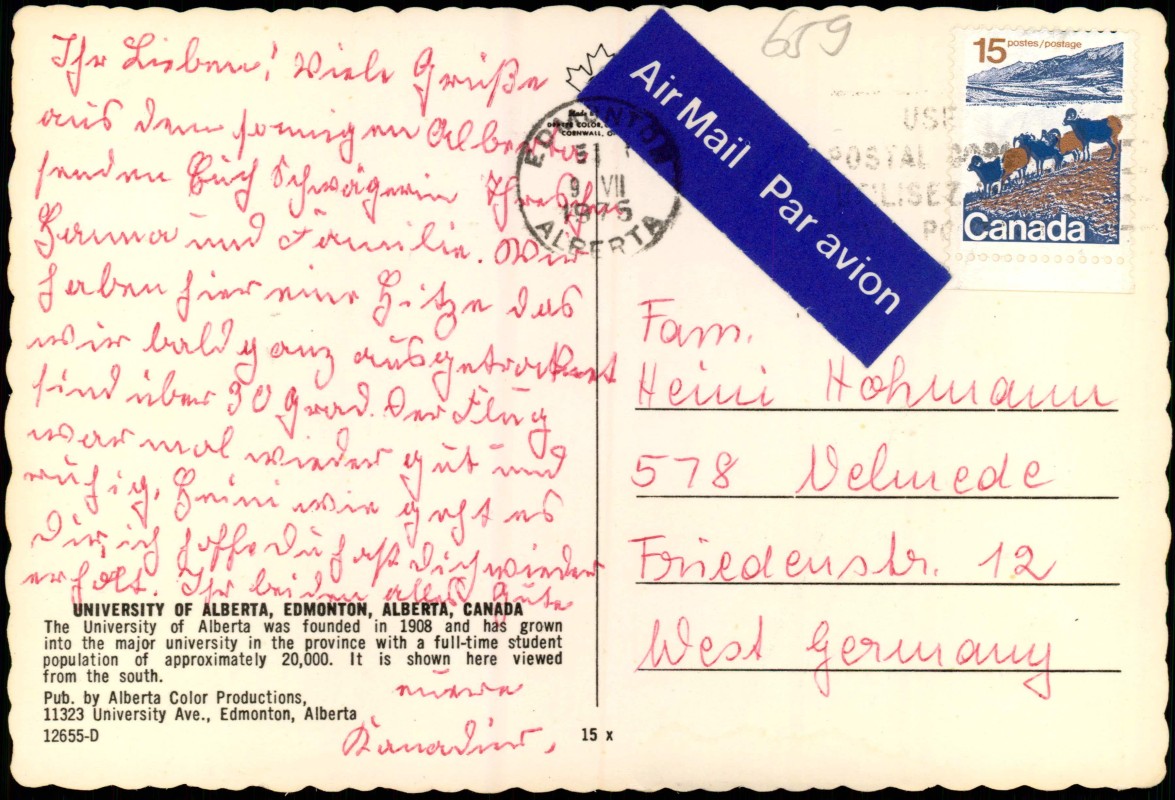 Ihr Lieben! Viele Grüße
aus dem sonnigen Alberta
senden Euch Schwägerin
Hanna und Familie. Wir
haben hier eine Hitze das
wir bald ganz ausgetrocknet
sind über 30 Grad. Der Flug
war mal wieder gut und
ruhig. Heini wie geht es
Dir, ich hoffe Du hast Dich wieder
erholt. Ihr beiden alles Gute
UNIVERSITY OF ALBERTA, EDMONTON, ALBERTA, CANADA
The University of Alberta was founded in 1908 and has grown
into the major university in the province with a full-time student
population of approximately 20,000. It is shown here viewed
from the south.
eure
Pub. by Alberta Color Productions,
11323 University Ave., Edmonton, Alberta
Kanadier.
12655-D
15 x
659
Air Mail Par avion
15 postes/postage
Canada
USE
POSTAL
EDMONTON
9 VII
1975
ALBERTA
CORNWALL,
Fam.
Heini Hohmann
578 Velmede
Friedenstr. 12
West Germany